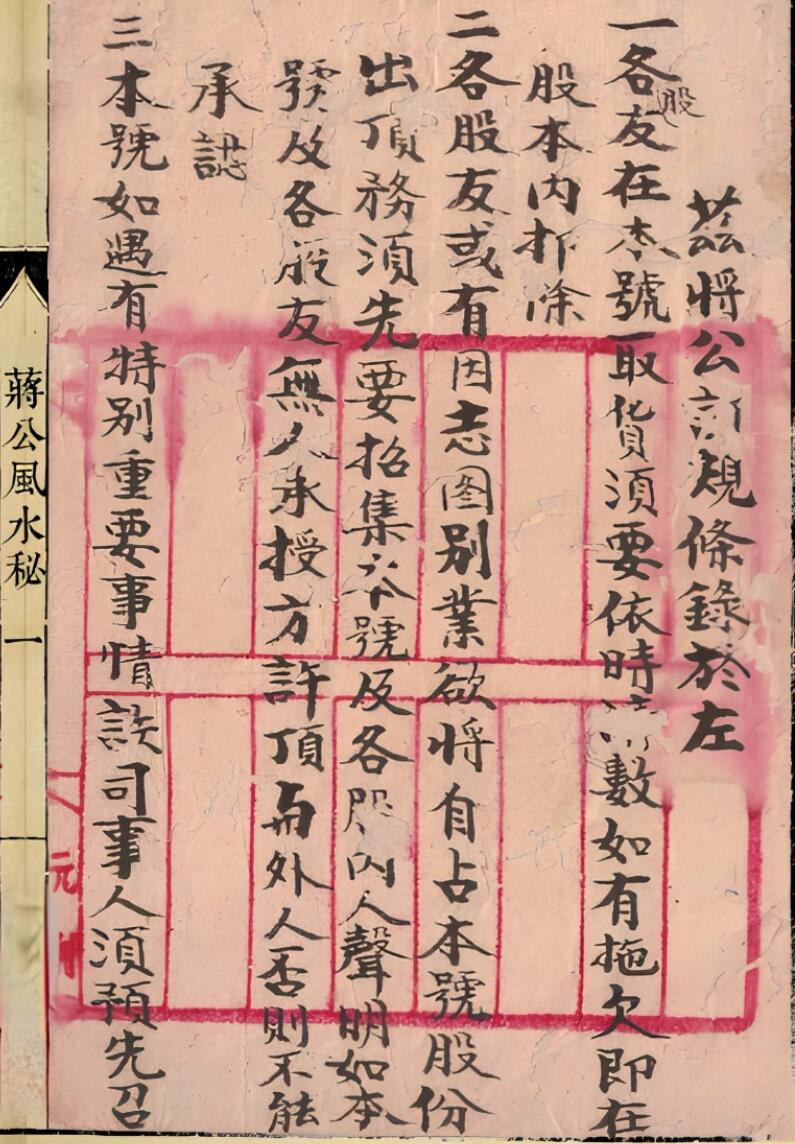 茲將公訂規條錄於左
一各股友在本號取貨須要依時清數如有拖欠即在
股本内折除
二各股友或有因志图别業欲將自占本號股份
出頂務須先要招集本號及各股内人聲明如本
號及各股友無人承授方許頂與外人否則不能
承認
三本號如遇有特别重要事情該司事人須預先召
蔣公風水秘 一
元